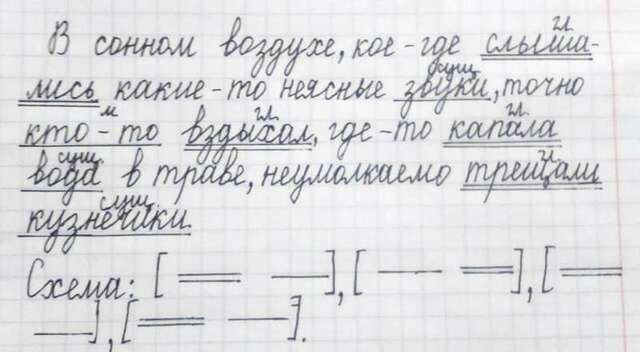 гл.
В сонном воздухе, кое-где слыша-
сущ.
лись какие-то неясные звуки, точно
м гл. гл.
кто-то вздыхал, где-то капала
сущ. гл.
вода в траве, неумолкаемо трещали
сущ.
кузнечики.
Схема: [ ], [ ], [
], [ ].